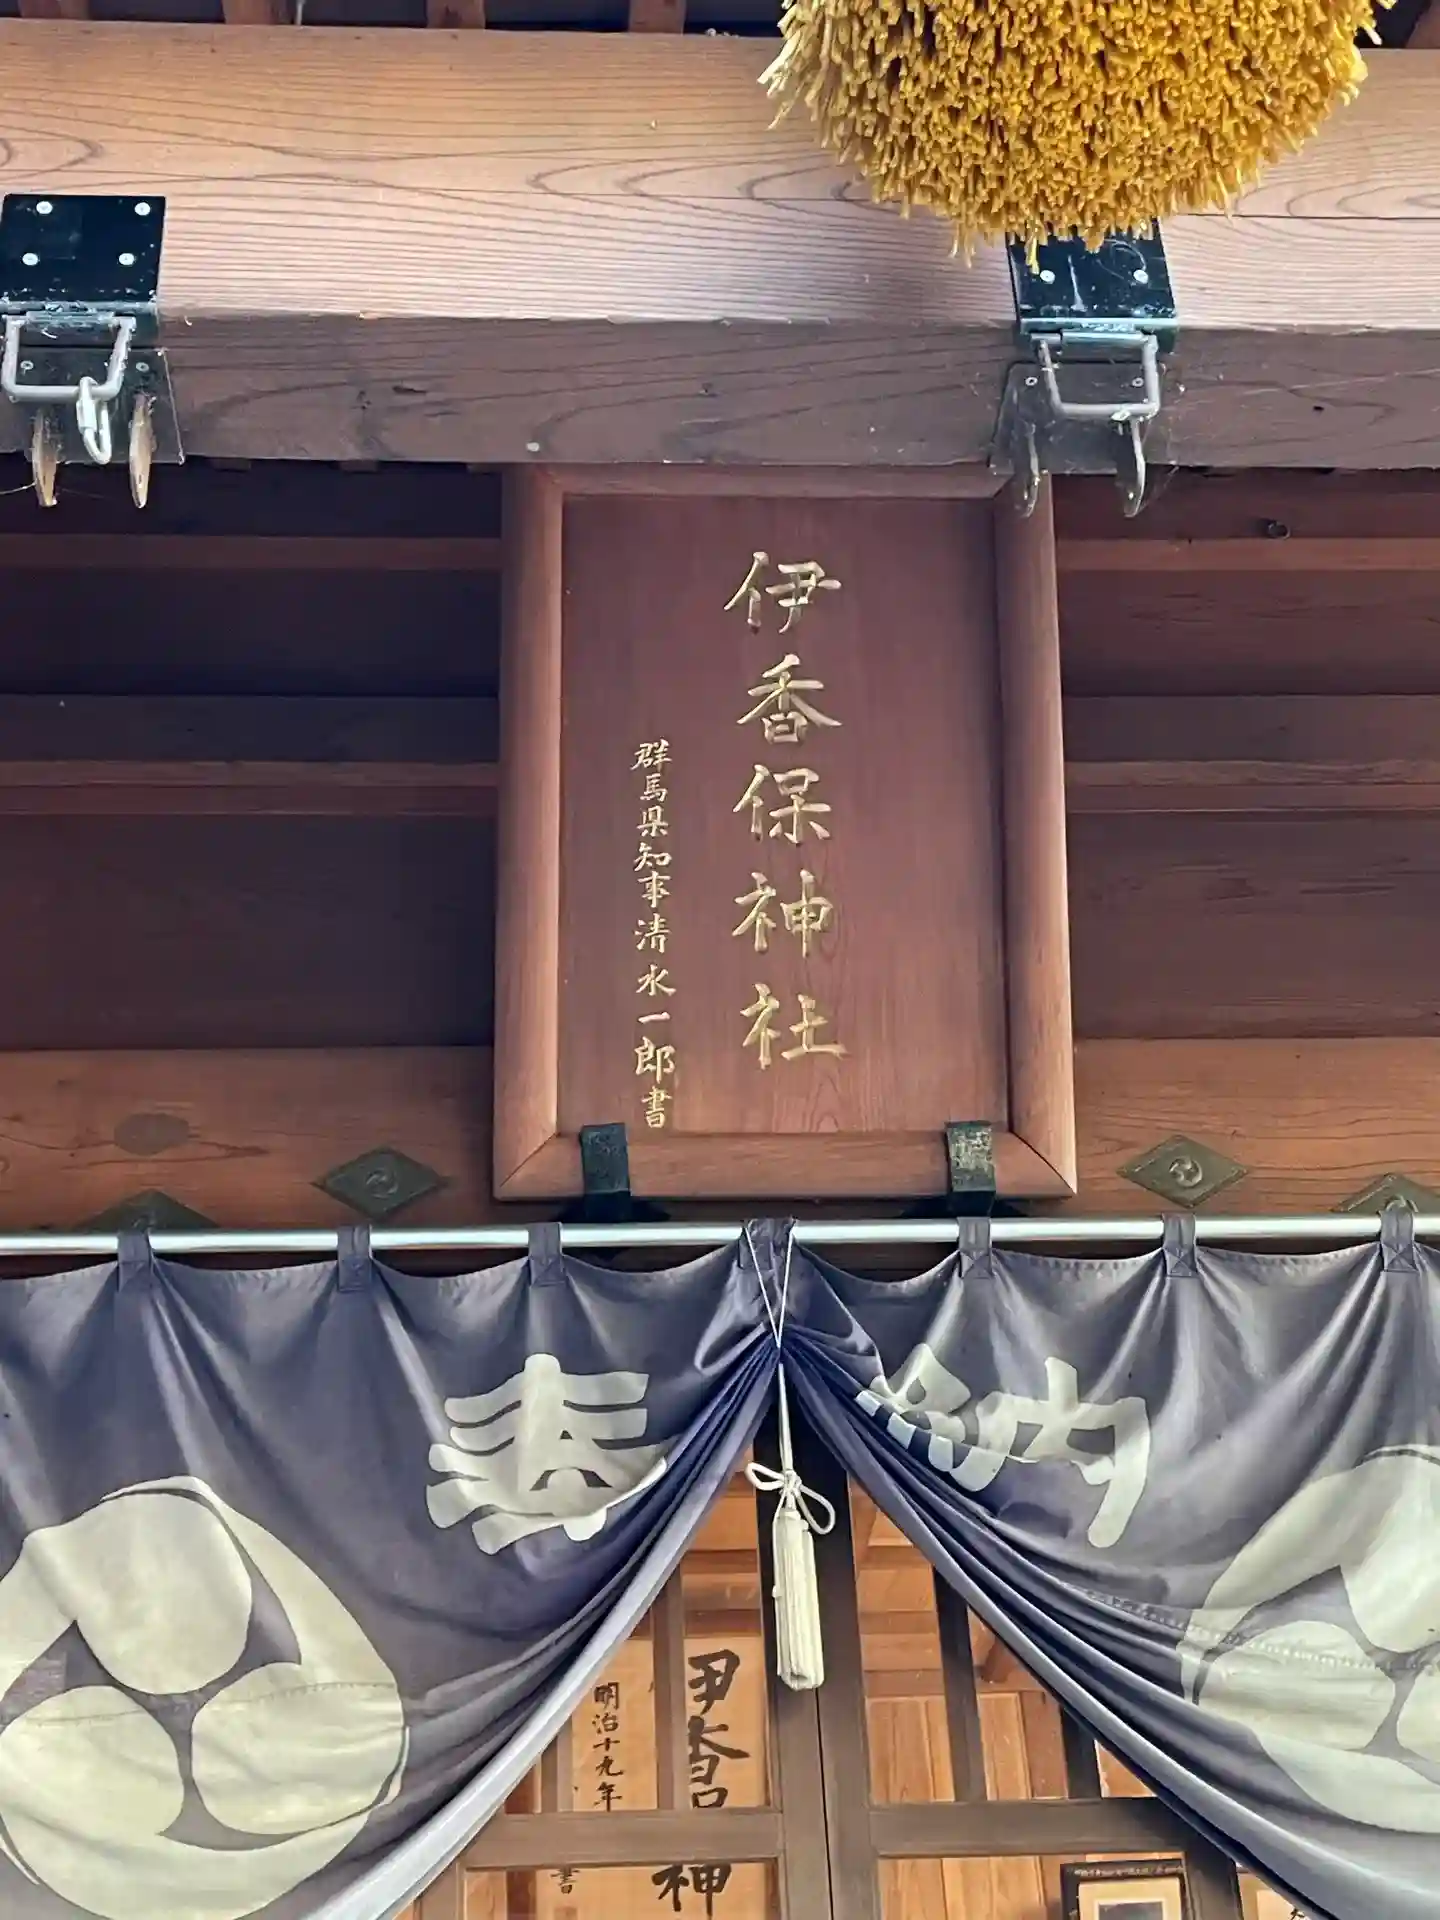 伊香保神社
群馬県知事清水一郎書
奉納
伊香保神
明治十九年
書